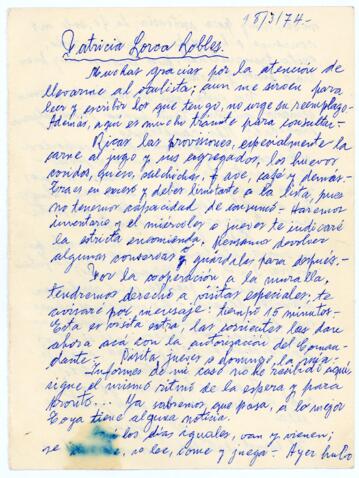 18/3/74.-
Patricia Lorca Robles.
Muchas gracias por la atención de
llevarme al oculista; aun me sirven para
leer y escribir los que tengo, no urge su reemplazo.-
Además, aquí es mucho trámite para consultar.-
Ricas las provisiones, especialmente la
carne al jugo y sus agregados, los huevos
cocidos, queso, salchichas, ave, café y demás.-
en exceso y debes limitarte a la lista, pues
no tenemos capacidad de consumo.- Haremos
inventario y el miércoles o jueves te indicaré
la estricta encomienda. Pensamos devolver
algunas conservas o guardarlas para después.-
Por la cooperación a la muralla,
tendremos derecho a visitas especiales, te
avisaré por mensaje: tiempo 15 minutos.-
Esta es visita extra, las corrientes las dan
ahora acá con la autorización del Coman-
dante.- Visita jueves o domingo la
Informes de mi caso no he recibido aquí,
sigue el mismo ritmo de la espera y para
pronto... Ya sabremos que pasa, a lo mejor
Goya tiene alguna noticia.
los días iguales, van y vienen;
se lee, come y juega.- Ayer hubo